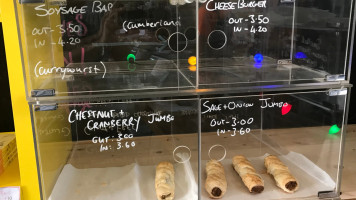 Soysage Bap
IN - 4.20
(cumberland)
(currywurst)
Cheese Burger
OUT - 3.50
IN - 4.20
Chestnut +
Cranberry Jumbo
OUT: 3.00
IN: 3.60
Sage + Onion Jumbo
OUT - 3.00
IN - 3.60